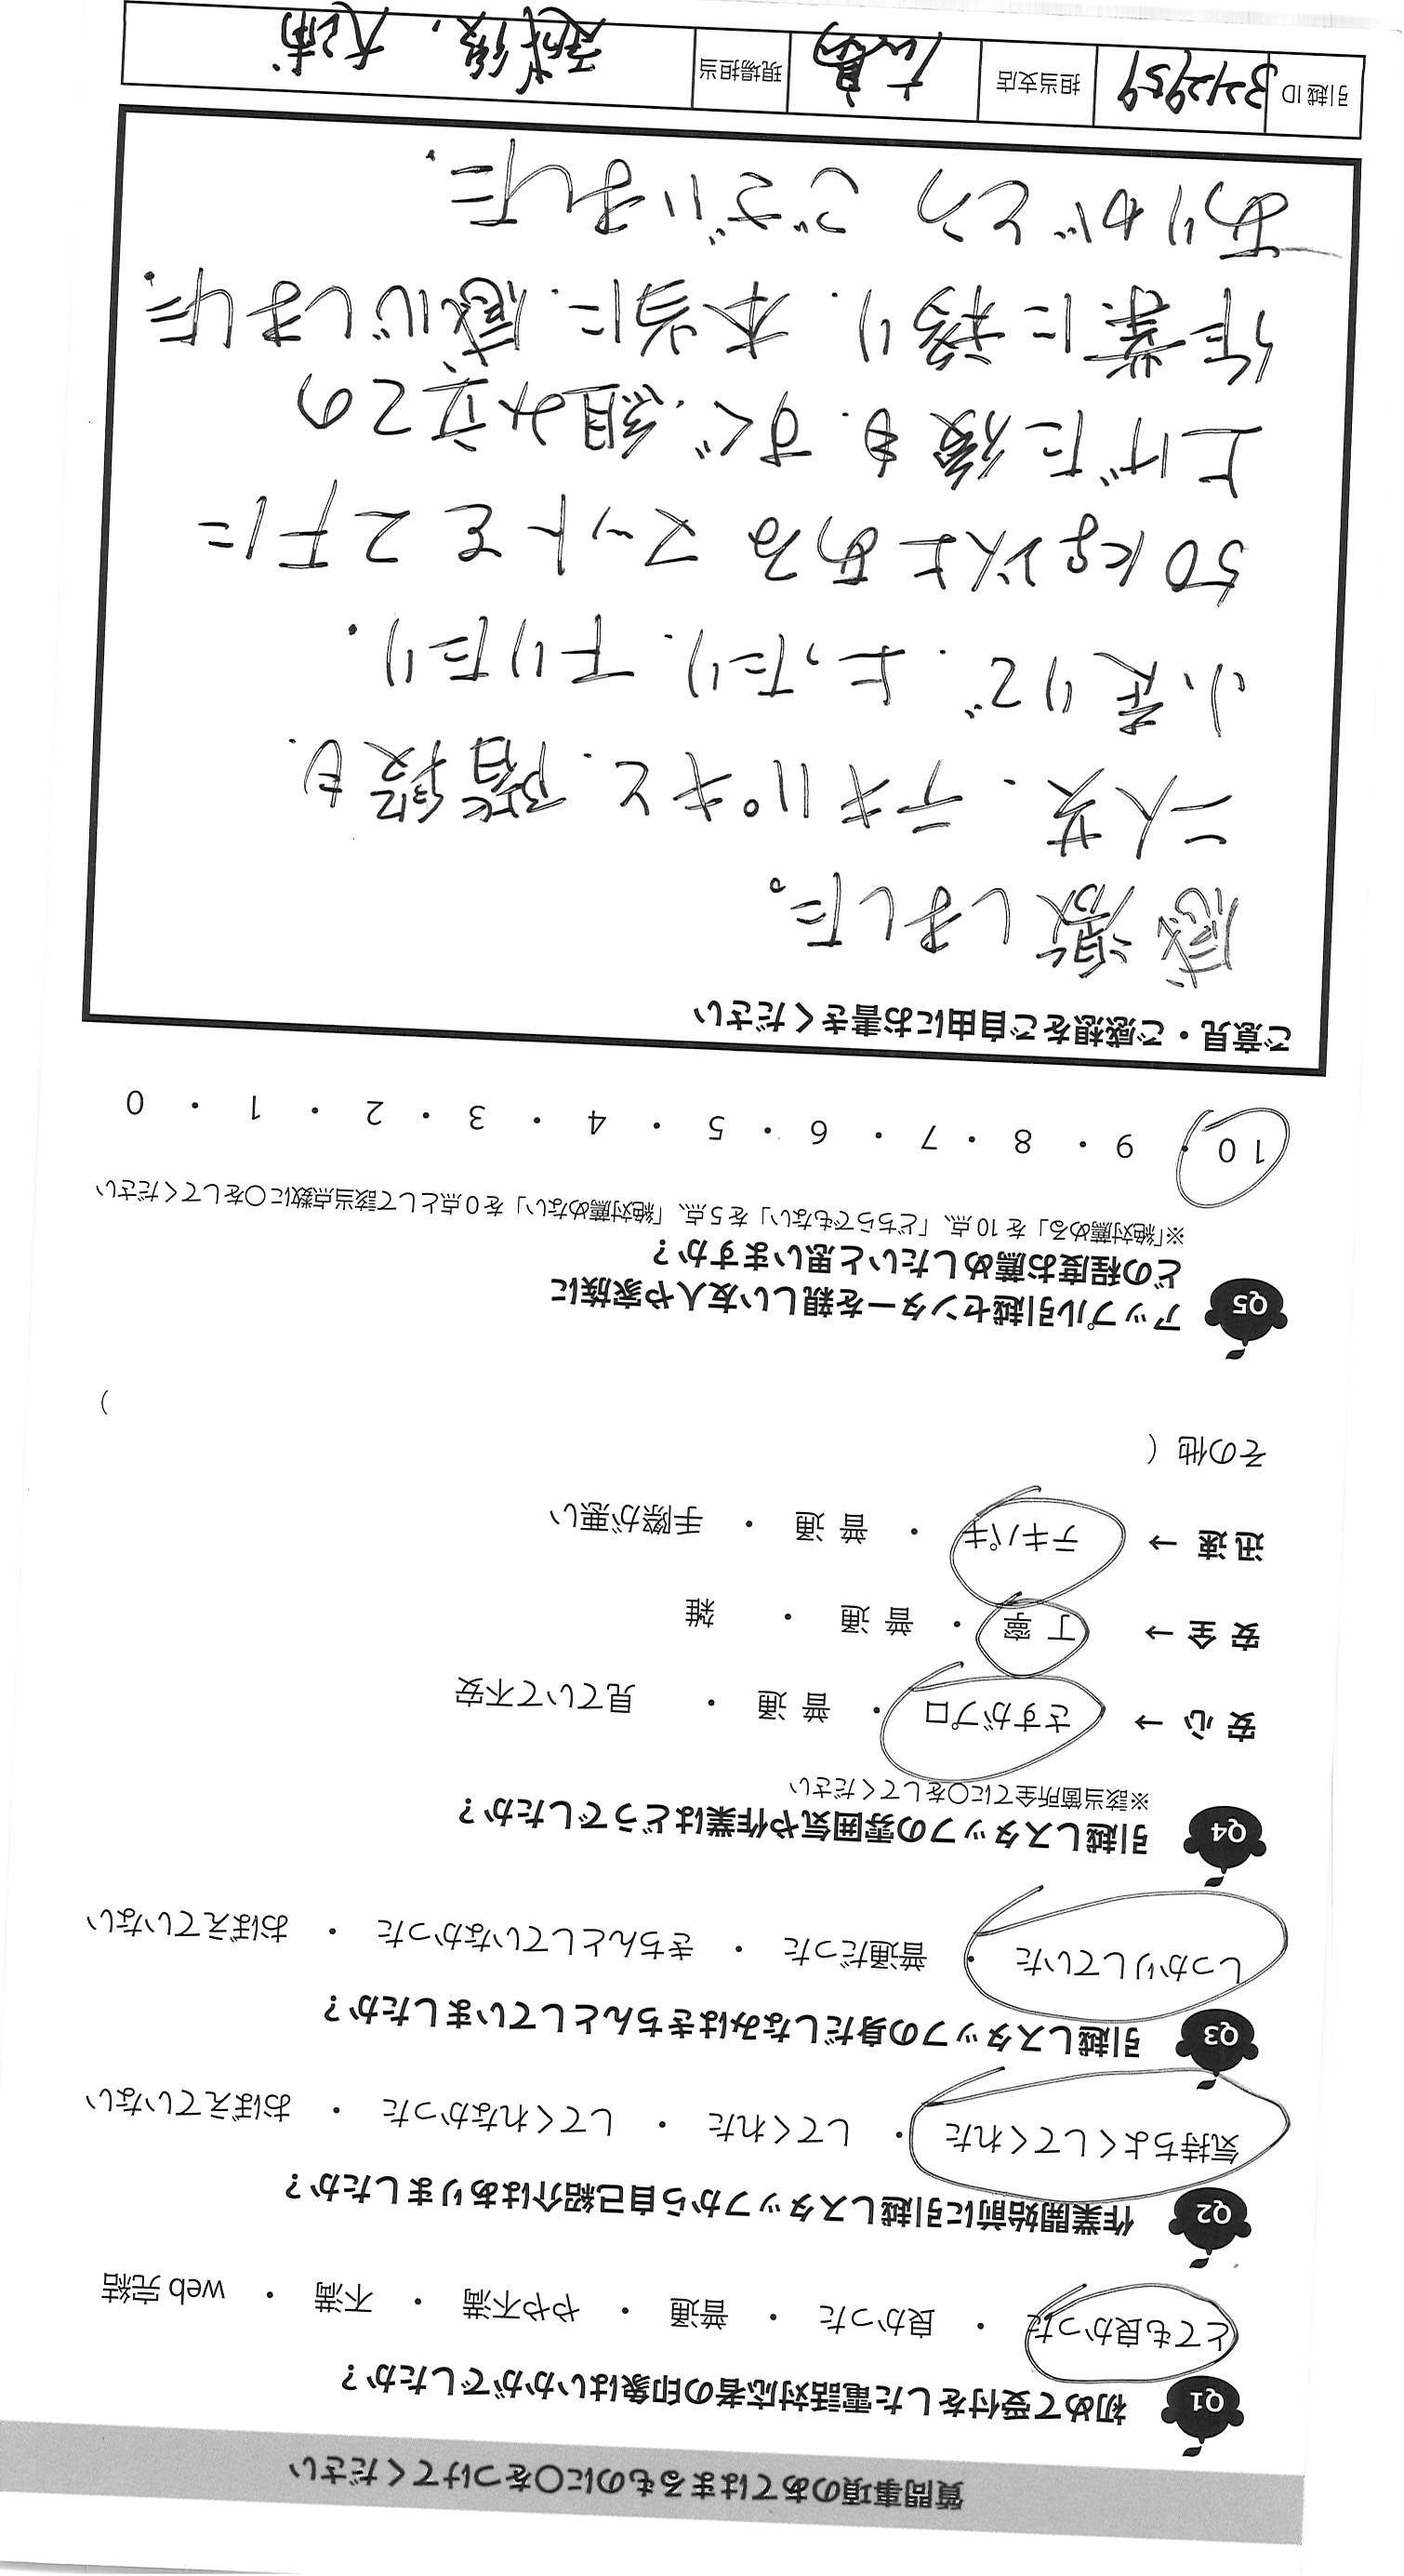 質問事項のあてはまるものに〇をつけてください
Q1 初めて受付をした電話対応者の印象はいかがでしたか？
とても良かった ・ 良かった ・ 普通 ・ やや不満 ・ 不満 ・ web 完結
Q2 作業開始前に引越しスタッフから自己紹介はありましたか？
気持ちよくしてくれた ・ してくれた ・ してくれなかった ・ おぼえていない
Q3 引越しスタッフの身だしなみはきちんとしていましたか？
しっかりしていた ・ 普通だった ・ きちんとしていなかった ・ おぼえていない
Q4 引越しスタッフの雰囲気や作業はどうでしたか？
※該当箇所全てに〇をしてください
安心 → さすがプロ ・ 普通 ・ 見ていて不安
安全 → 丁寧 ・ 普通 ・ 雑
迅速 → テキパキ ・ 普通 ・ 手際が悪い
その他（ ）
Q5 アップル引越センターを親しい友人や家族に
どの程度お薦めしたいと思いますか？
※「絶対薦める」を 10 点、「どちらでもない」を 5 点、「絶対薦めない」を 0 点として該当点数に〇をしてください
10 ・ 9 ・ 8 ・ 7 ・ 6 ・ 5 ・ 4 ・ 3 ・ 2 ・ 1 ・ 0
ご意見・ご感想をご自由にお書きください
感激しました。
二人共、テキパキと、階段も、
小走りで、上ったり、下りたり、
50kg以上あるマットを2Fに
上げた後も、すぐ、組み立ての
作業に移り、本当に、感心しました。
ありがとうございました。
引越 ID 3212959 担当支店 現場担当 大浦